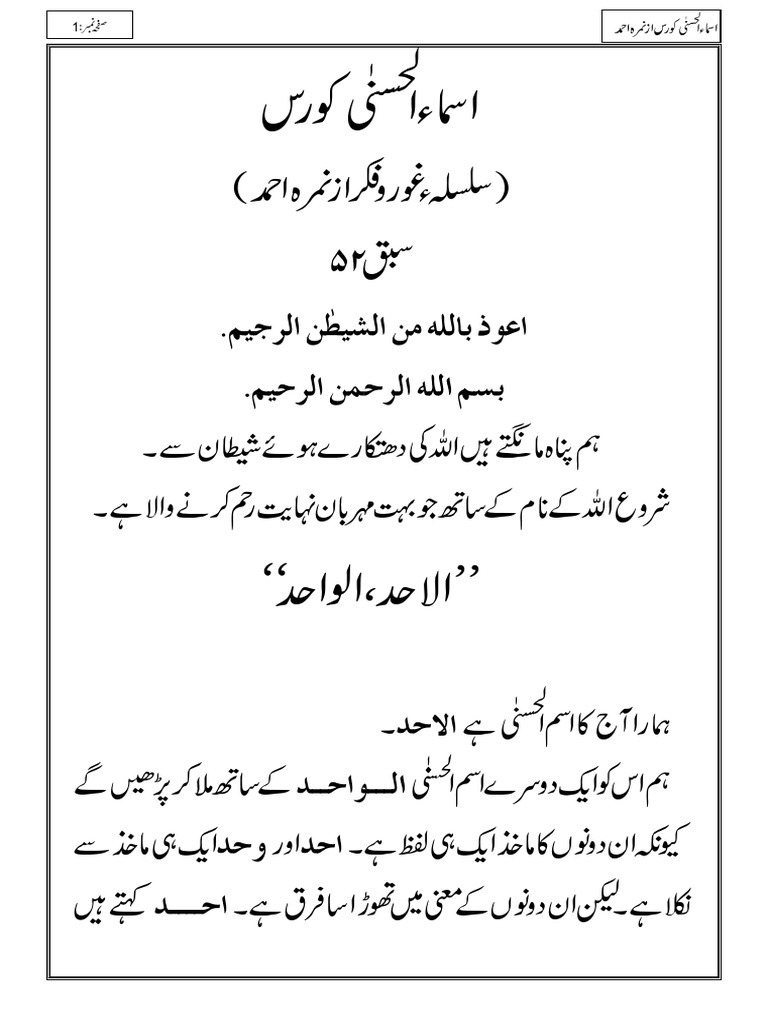 اسماءالحسنٰی کورس از نمرہ احمد
صفحہ نمبر:1
اسماءالحسنٰی کورس
(سلسلہء غوروفکر از نمرہ احمد)
سبق ۵۲
اعوذ بالله من الشیطٰن الرجیم.
بسم الله الرحمن الرحیم.
ہم پناہ مانگتے ہیں اللہ کی دھتکارے ہوئے شیطان سے۔
شروع اللہ کے نام کے ساتھ جو بہت مہربان نہایت رحم کرنے والا ہے۔
’’الاحد،الواحد‘‘
ہمارا آج کا اسم الحسنٰی ہے الاحد۔
ہم اس کو ایک دوسرے اسم الحسنٰی الــواحــد کے ساتھ ملا کر پڑھیں گے
کیونکہ ان دونوں کا ماخذ ایک ہی لفظ ہے۔ احد اور وحد ایک ہی ماخذ سے
نکلا ہے۔ لیکن ان دونوں کے معنی میں تھوڑا سا فرق ہے۔ احــــد کہتے ہیں